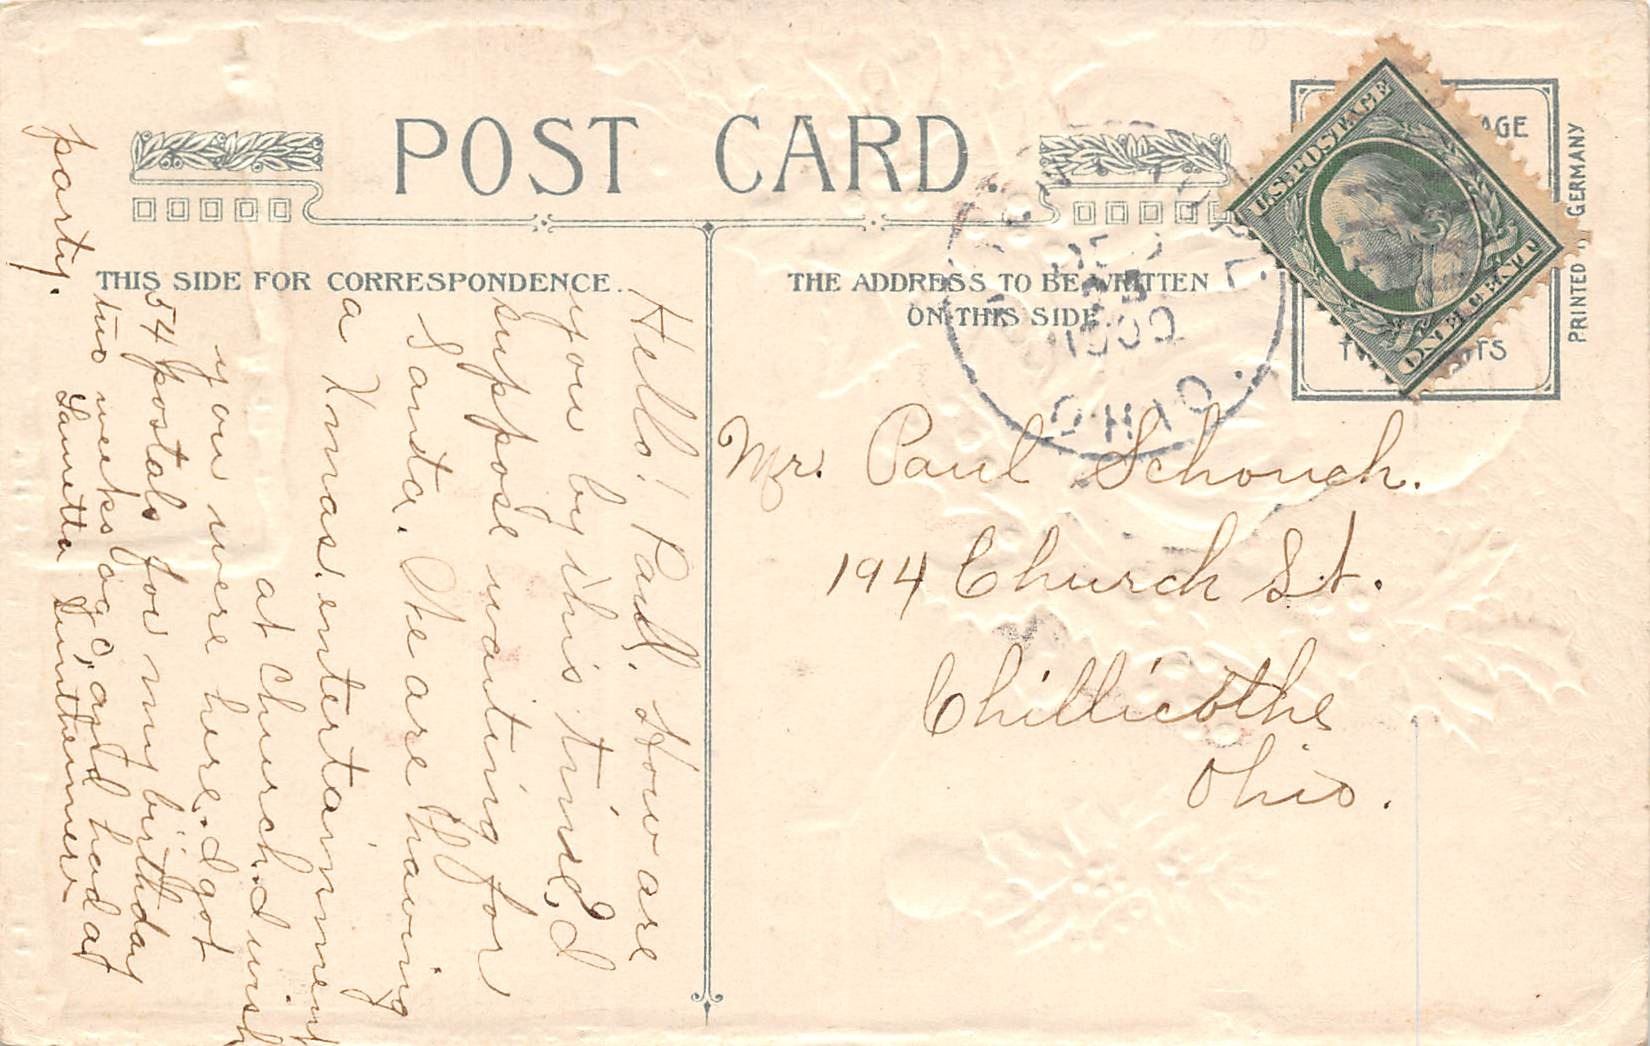 POST CARD
THIS SIDE FOR CORRESPONDENCE.
THE ADDRESS TO BE WRITTEN
ON THIS SIDE
U.S. POSTAGE
ONE CENT
AGE
TS
PRINTED
GERMANY
OHIO.
Hello! Paul. How are
you by this time, I
suppose waiting for
Santa. We are having
a Xmas. entertainment
at Church. I wish
you were here. I got
54 postals for my birthday
two weeks ago, and had a
party.
Lauretta
Mr. Paul Schouch.
194 Church St.
Chillicothe
Ohio.